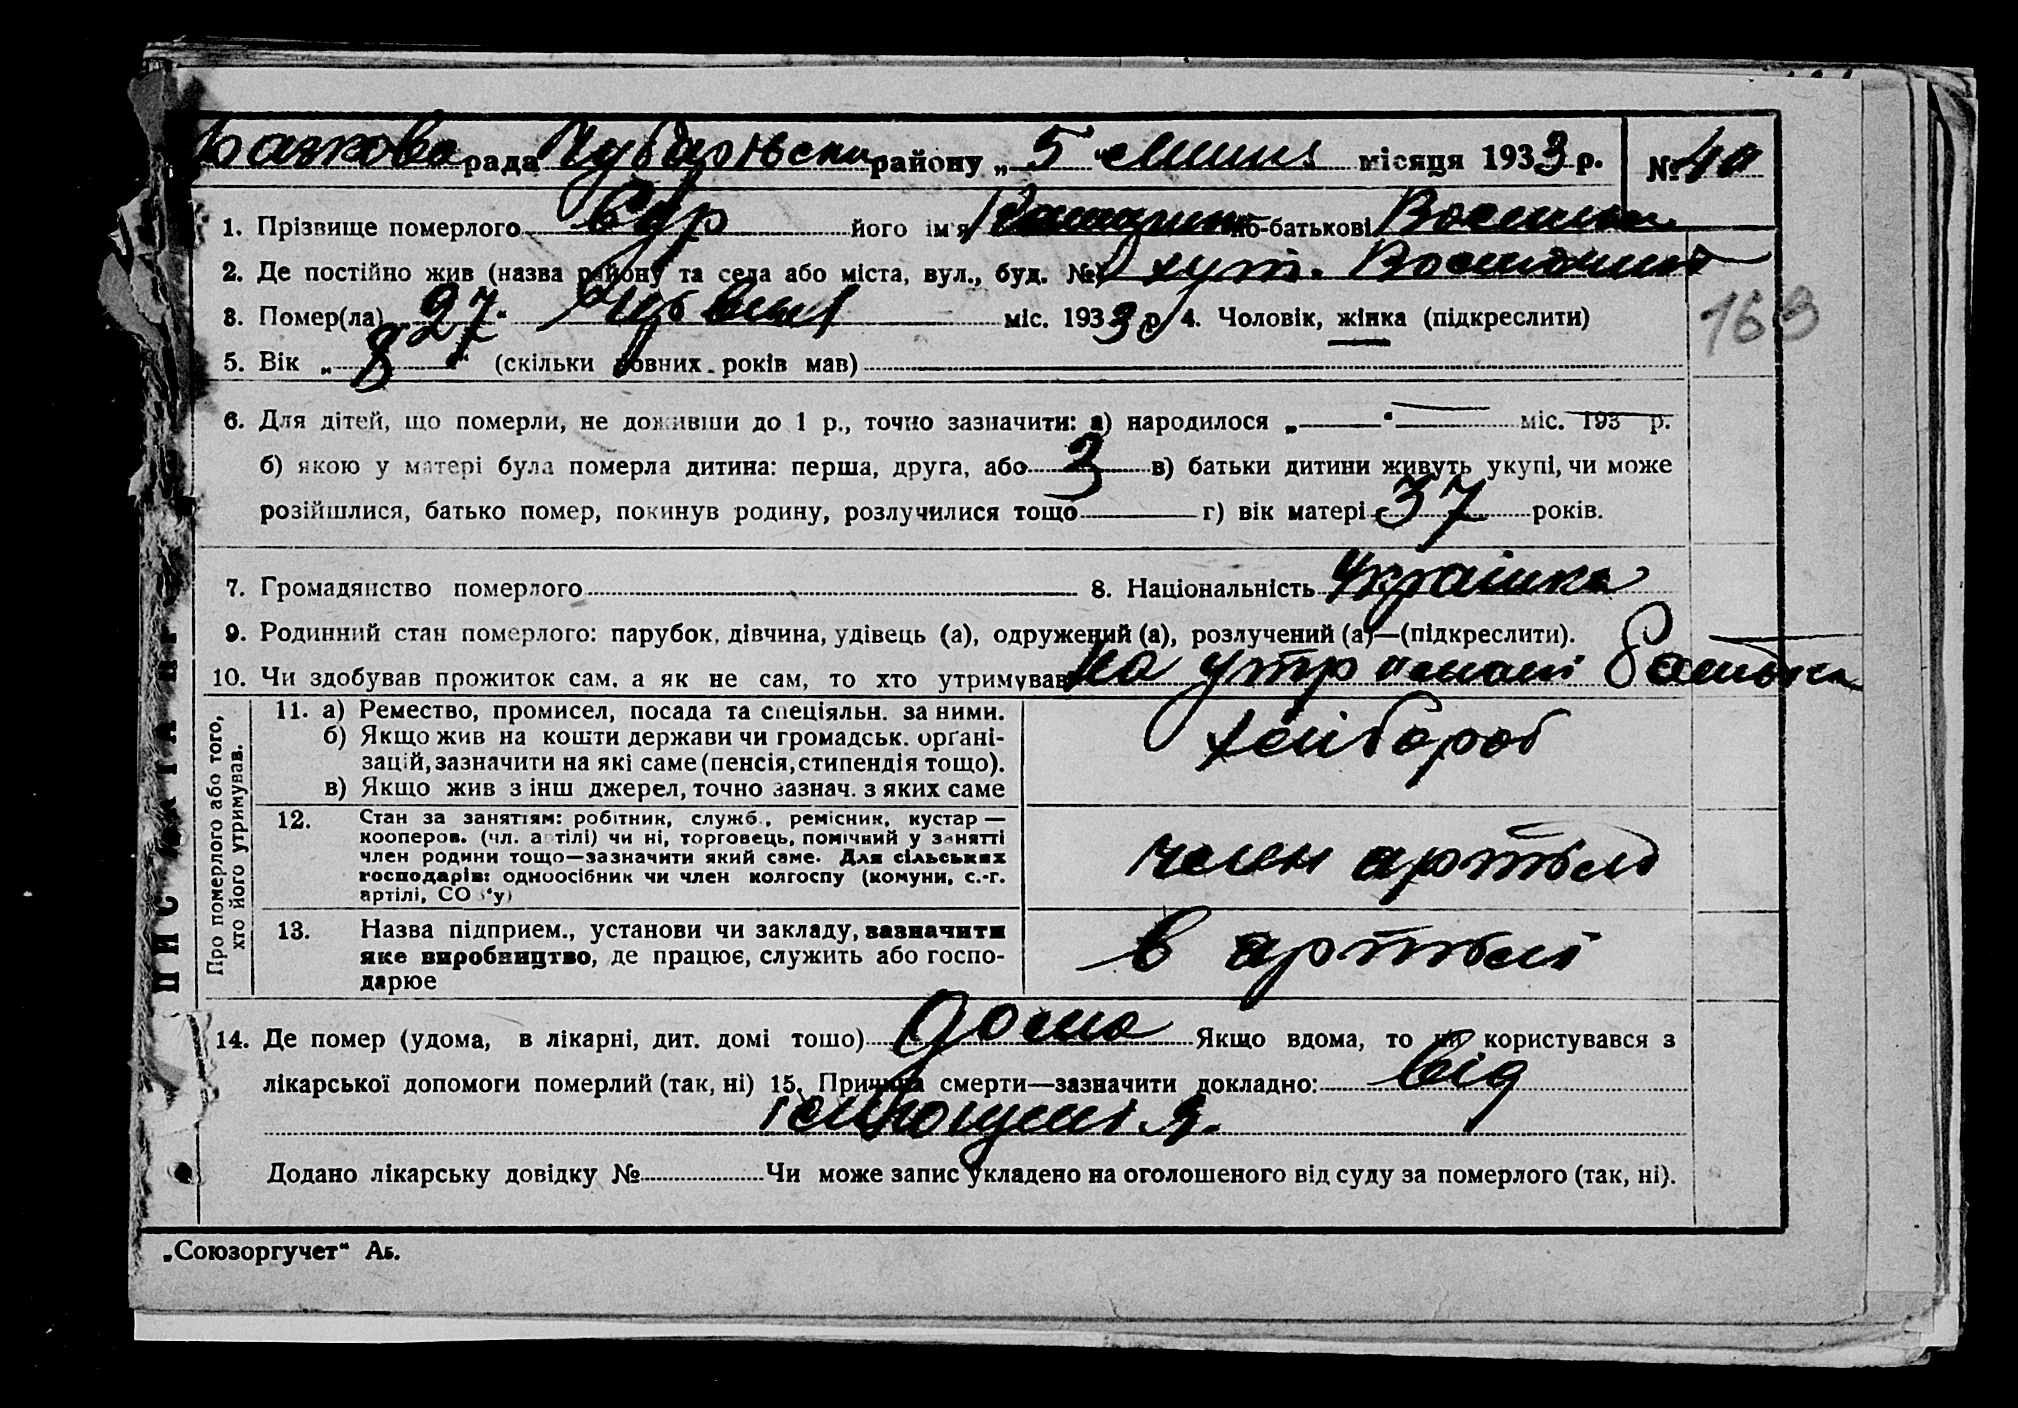 рада Чубарівськ району „ 5 “ липня місяця 1933 р. № 40
1. Прізвище померлого його ім'я по-батькові Василів
2. Де постійно жив (назва району та села або міста, вул., буд. № хут.
163
3. Помер(ла) „ 27 “ червня міс. 1933 р. 4. Чоловік, жінка (підкреслити)
5. Вік „ 8 “ (скільки повних років мав)
6. Для дітей, що померли, не доживши до 1 р., точно зазначити: а) народилося „ “ міс. 193 р.
б) якою у матері була померла дитина: перша, друга, або 3 в) батьки дитини живуть укупі, чи може
розійшлися, батько помер, покинув родину, розлучилися тощо г) вік матері 37 років.
7. Громадянство померлого 8. Національність Українка
9. Родинний стан померлого: парубок, дівчина, удівець (а), одружений (а), розлучений (а)—(підкреслити).
10. Чи здобував прожиток сам, а як не сам, то хто утримував на утриманні батька
Про померлого або того,
хто його утримував.
11. а) Ремество, промисел, посада та спеціяльн. за ними.
б) Якщо жив на кошти держави чи громадськ. органі-
зацій, зазначити на які саме (пенсія, стипендія тощо).
в) Якщо жив з інш джерел, точно зазнач. з яких саме
хлібороб
12. Стан за заняттям: робітник, служб., ремісник, кустар —
кооперов. (чл. артілі) чи ні, торговець, помічний у занятті
член родини тощо—зазначити який саме. Для сільських
господарів: одноосібник чи член колгоспу (комуни, с.-г.
артілі, СО у)
член артілі
13. Назва підприєм., установи чи закладу, зазначити
яке виробництво, де працює, служить або госпо-
дарює
в артілі
14. Де помер (удома, в лікарні, дит. домі тошо) дома Якщо вдома, то чи користувався з
лікарської допомоги померлий (так, ні) 15. Причина смерти—зазначити докладно: від
Додано лікарську довідку № Чи може запис укладено на оголошеного від суду за померлого (так, ні).
„Союзоргучет“ АБ.